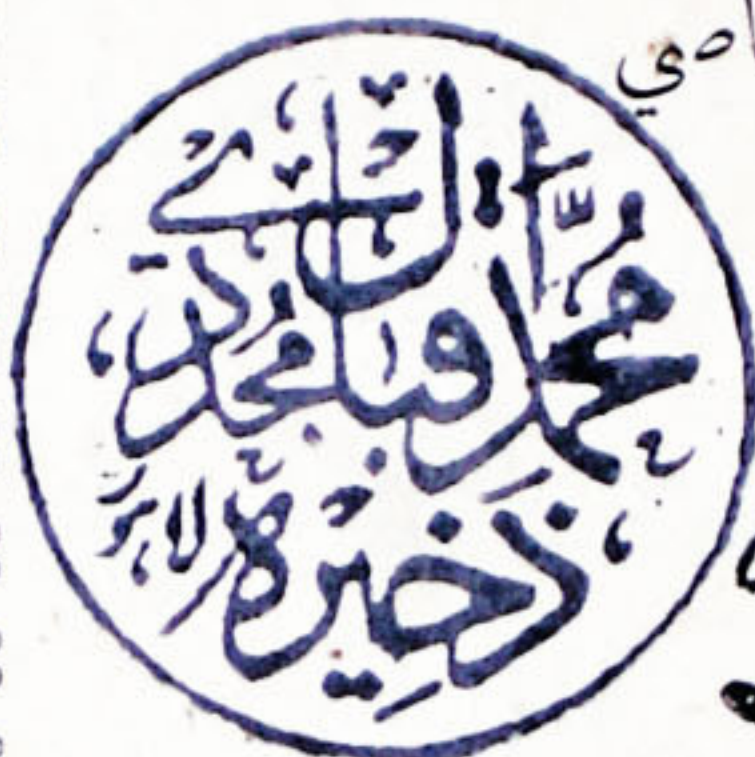 ذَخِيرَہ
مُحَمَّد اقبال مُجَدِّدِی
لاہور